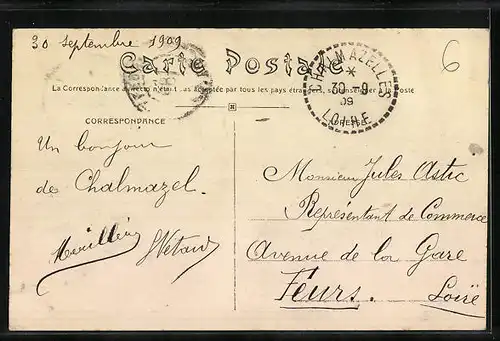 30 septembre 1909
6
Carte Postale
CHALMAZELLES
* 30-9 09
LOIRE
La Correspondance au recto n'étant pas acceptée par tous les pays étrangers, se renseigner à la Poste
CORRESPONDANCE
ADRESSE
Un bonjour
de Chalmazel.
Monsieur Jules Astic
Représentant de Commerce
Avenue de la Gare
Feurs. Loire